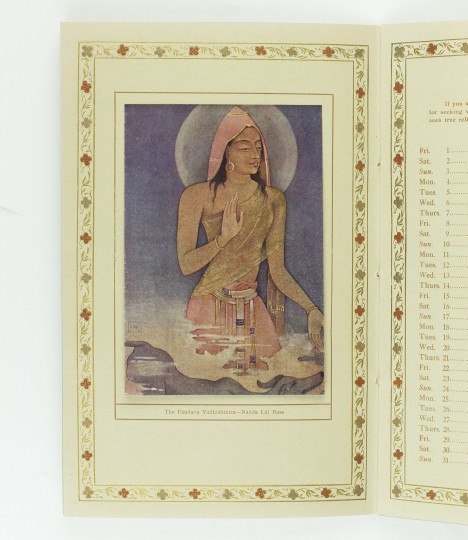 The Pandava Yudhisthira—Nanda Lal Bose
If you
for seeking
seek true
Fri. 1
Sat. 2
Sun. 3
Mon. 4
Tues. 5
Wed. 6
Thurs. 7
Fri. 8
Sat. 9
Sun. 10
Mon. 11
Tues. 12
Wed. 13
Thurs. 14
Fri. 15
Sat. 16
Sun. 17
Mon. 18
Tues. 19
Wed. 20
Thurs. 21
Fri. 22
Sat. 23
Sun. 24
Mon. 25
Tues. 26
Wed. 27
Thurs. 28
Fri. 29
Sat. 30
Sun. 31